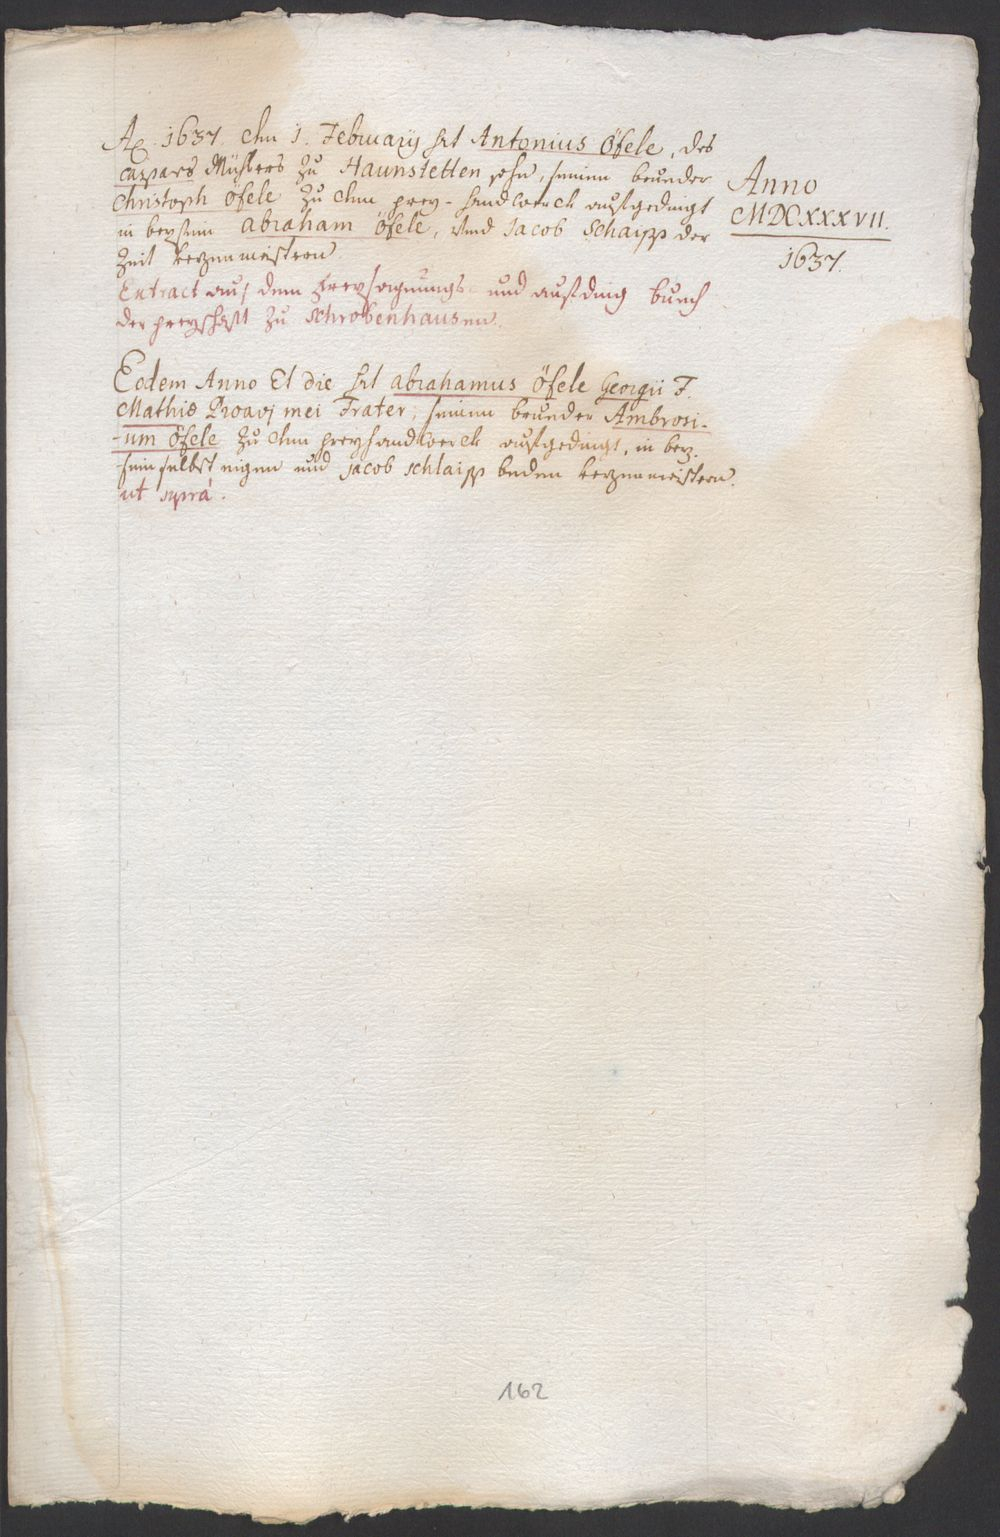 Ao. 1637 den 1. Februarij hat Antonius Öfele, des
Caspars Müllers zu Haunstetten sohn, seinen brueder
Christoph Öfele zu dem prey-handwerck aufgedingt
in beysein Abraham Öfele, Vnd Jacob Schaipp der
Zeit kerzenmeistern.
Extract aus dem und aufding buech
der zu Schrobenhausen.
Anno
MDCXXXVII.
1637.
Eodem Anno Et die hat abrahamus Öfele Georgii F.
Mathiæ Proavi mei Frater, seinen brueder Ambrosi-
-um Öfele zu dem preyhandwerck aufgedingt, in bey-
sein selbst eigen und Jacob Schlaipp beden kerzenmeistern.
ut suprà.
162